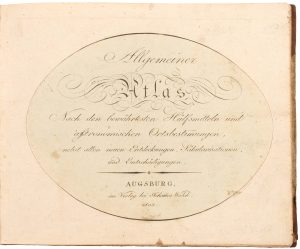 Allgemeiner
Atlas
Nach den bewährtesten Hülfsmitteln und
astronomischen Ortsbestimungen,
nebst allen neuen Entdeckungen Sekularisationen,
und Entschädigungen.
AUGSBURG.
im Verlag bei Walch.